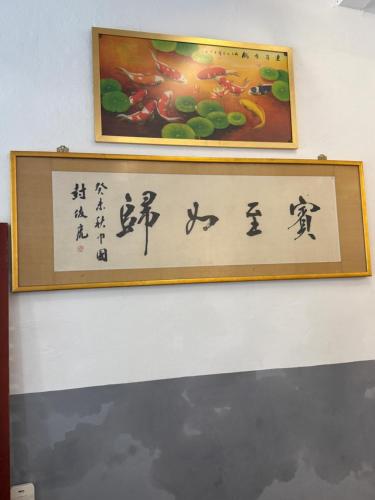 賓至如歸
癸未秋中國
封俊虎